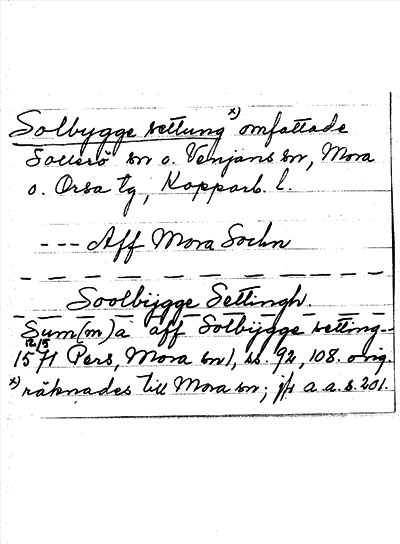 Solbygge settung x) omfattade
Sollerö sn o. Venjans sn, Mora
o. Orsa tg, Kopparb. l.
--- Aff Mora Sochn
Soolbijgge Settingh.
Sum(m)a aff Solbijgge setting
12/13
1571 Pers, Mora sn), ss. 92, 108. orig.
x) räknades till Mora sn; jfr a. a. s. 201.